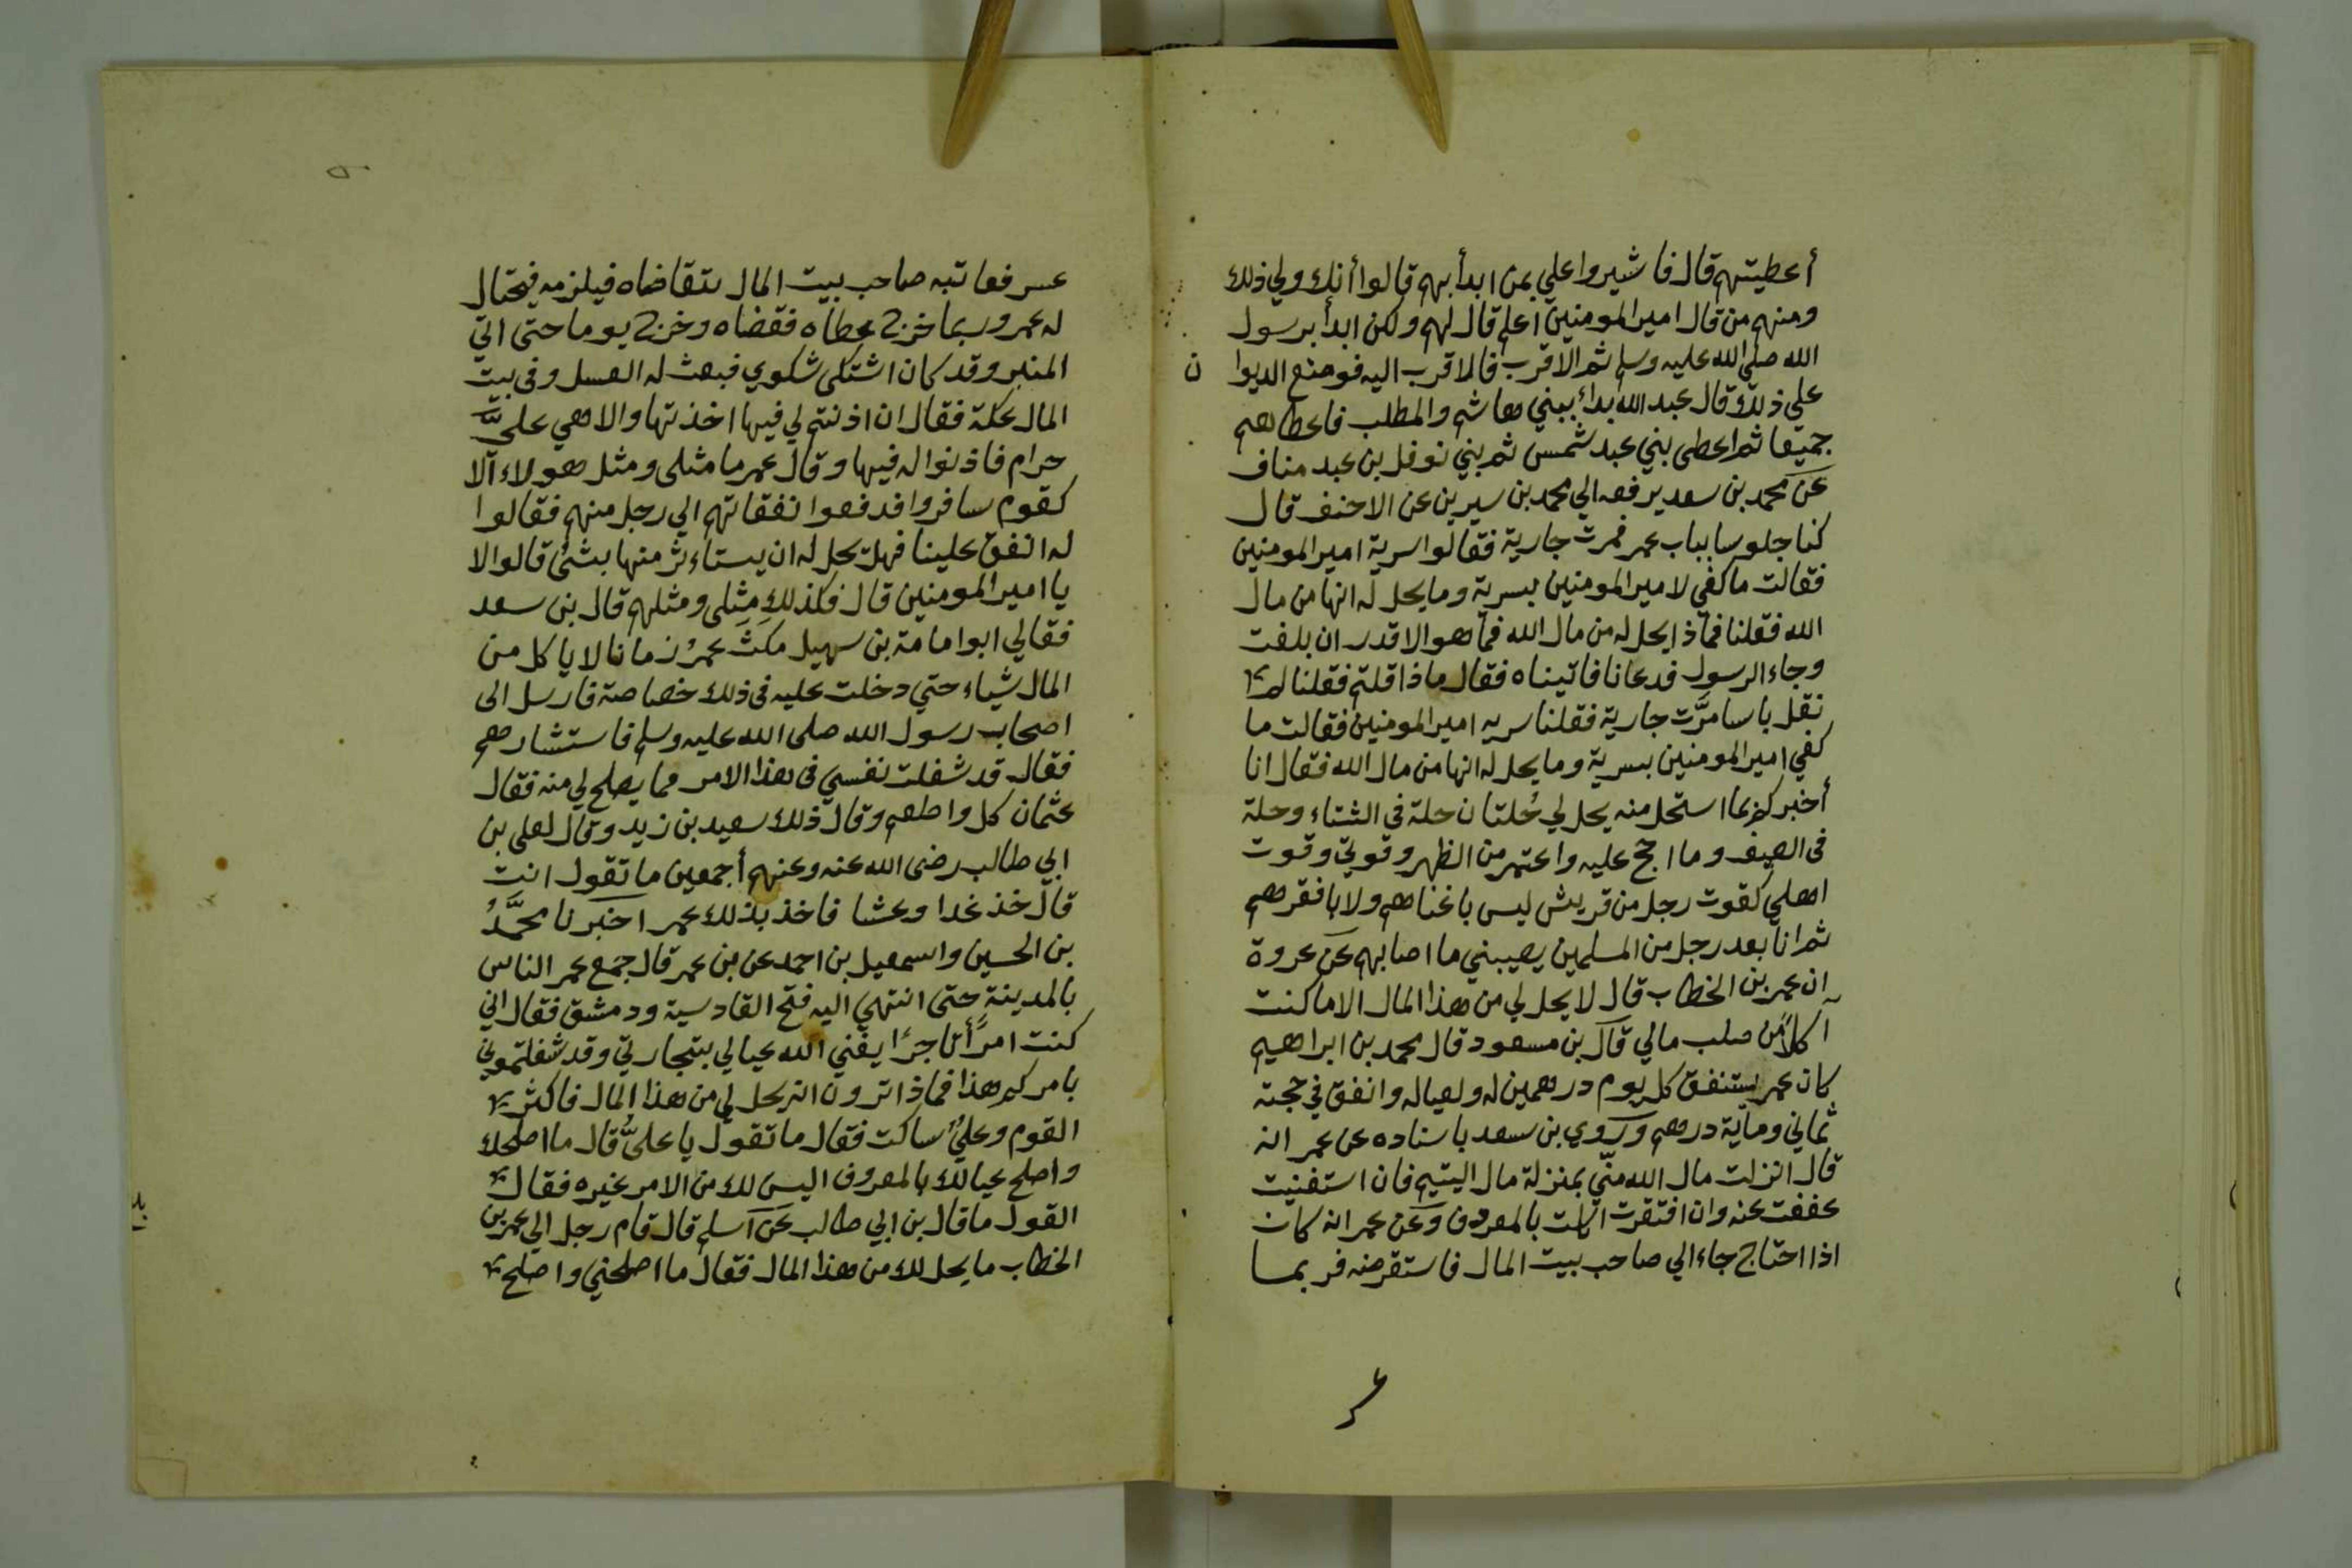 أعطيتهم قال فاشيروا علي بمن ابدأ بهم قالوا أنك ولي ذلك
ومنهم من قال امير المومنين اعلم قال لهم ولكن ابدأ برسول
الله صلي الله عليه وسلم ثم الاقرب فالاقرب اليه فوضع الديوا ن
علي ذلك قال عبد الله بداء ببني هاشم والمطلب فاعطاهم
جميعا ثم اعطى بني عبد شمس ثم بني نوفل بن عبد مناف
عن محمد بن سعد يرفعه الي محمد بن سيرين عن الاحنف قال
كنا جلوسا بباب عمر فمرت جارية فقالوا سرية امير المومنين
فقالت ما كفي لامير المومنين بسرية وما يحل له انها من مال
الله فقلنا فماذا يحل له من مال الله فما هو الا قدر ان بلغت
وجاء الرسول فدعانا فاتيناه فقال ماذا قلتم فقلنا لم
نقل باسا مرَّت جارية فقلنا سريه امير المومنين فقالت ما
كفي امير المومنين بسرية وما يحل له انها من مال الله فقال انا
أخبركم بما استحل منه يحل لي حُلتان حلة في الشتاء وحلة
في الصيف وما احج عليه واعتمر من الظهر وقوتي وقوت
اهلي كقوت رجل من قريش ليس باغناهم ولا بافقرهم
ثم انا بعد رجل من المسلمين يصيبني ما اصابهم عن عروة
ان عمر بن الخطاب قال لا يحل لي من هذا المال الا ما كنت
آكلاً من صلب مالي قال بن مسعود قال محمد بن ابراهيم
كان عمر يستنفق كل يوم درهمين له ولعياله وانفق في حجته
ثماني وماية درهم وروي بن سعد باسناده عن عمر انه
قال انزلت مال الله منّي بمنزلة مال اليتيم فان استغنيت
عففت عنه وان افتقرت اكلت بالمعروف وعن عمر انه كان
اذا احتاج جاء الي صاحب بيت المال فاستقرضه فربما
عسر فعاتبه صاحب بيت المال يتقاضاه فيلزمه فيحتال
له عمر وربما خرج عطاه فقضاه وخرج يوما حتى اتي
المنبر وقد كان اشتكى شكوي فبعث له العسل وفي بيت
المال عكة فقال ان اذنتم لي فيها اخذتها والا هي عليَّ
حرام فاذنوا له فيها وقال عمر ما مثلى ومثل هولاء الا
كقوم سافروا فدفعوا نفقاتهم الي رجل منهم فقالوا
له انفق علينا فهل تحل له ان يستاءثر منها بشئ قالوا لا
يا امير المومنين قال فكذلك مثلى ومثلهم قال بن سعد
فقالي ابوا مامة بن سهيل مكث عمرُ زمانا لا ياكل من
المال شياء حتي دخلت عليه في ذلك خصاصة فارسل الى
اصحاب رسول الله صلى الله عليه وسلم فاستشارهم
فقال قد شغلت نفسي في هذا الامر فما يصلح لي منه فقال
عثمان كل واطعم وقال ذلك سعيد بن زيد وقال لعلى بن
ابي طالب رضى الله عنه وعنهم أجمعين ما تقول انت
قال خذ غدا وعشا فاخذ بذلك عمر اخبرنا محمَّدُ
بن الحسين واسمعيل بن احمد عن بن عمر قال جمع عمر الناس
بالمدينة حتى انتهي اليه فتح القادسية ودمشق فقال اني
كنت امرًأ تاجرًا يغني الله عيالي بتجارتي وقد شغلتموني
بامركم هذا فماذا ترون انه يحل لي من هذا المال فاكثر
القوم وعليٌ ساكت فقال ما تقول يا عليُّ قال ما اصلحك
واصلح عيالك بالمعروف اليس لك من الامر غيره فقال
القول ما قال بن ابي طالب عن اسلم قال قام رجل الي عمر بن
الخطاب ما يحل لك من هذا المال فقال ما اصلحني واصلح